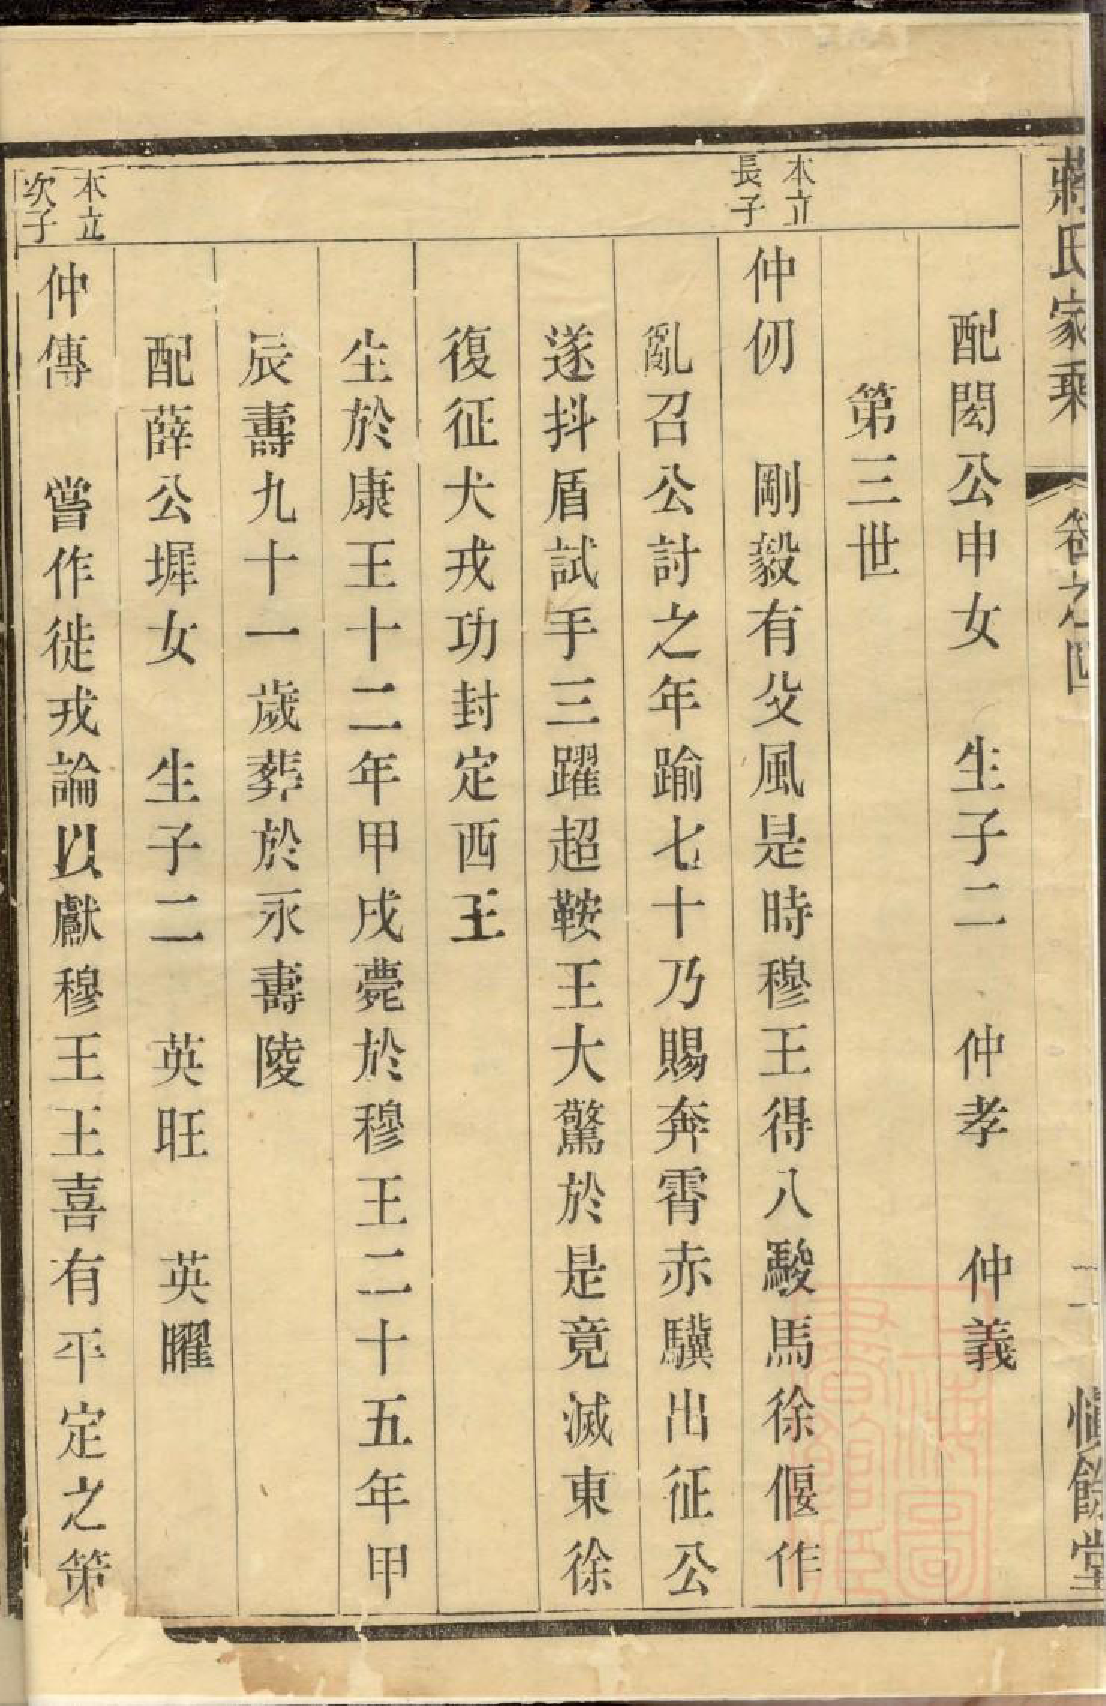 蔣氏家乘
卷之四
慎餘堂
配閎公申女　生子二　仲孝　仲義
第三世
本立
長子
仲仞　剛毅有父風是時穆王得八駿馬徐偃作
亂召公討之年踰七十乃賜奔霄赤驥出征公
遂抖盾試手三躍超鞍王大驚於是竟滅東徐
復征犬戎功封定西王
生於康王十二年甲戌薨於穆王二十五年甲
辰壽九十一歲葬於永壽陵
配薛公墀女　生子二　英旺　英曜
本立
次子
仲傳　嘗作徙戎論以獻穆王王喜有平定之策